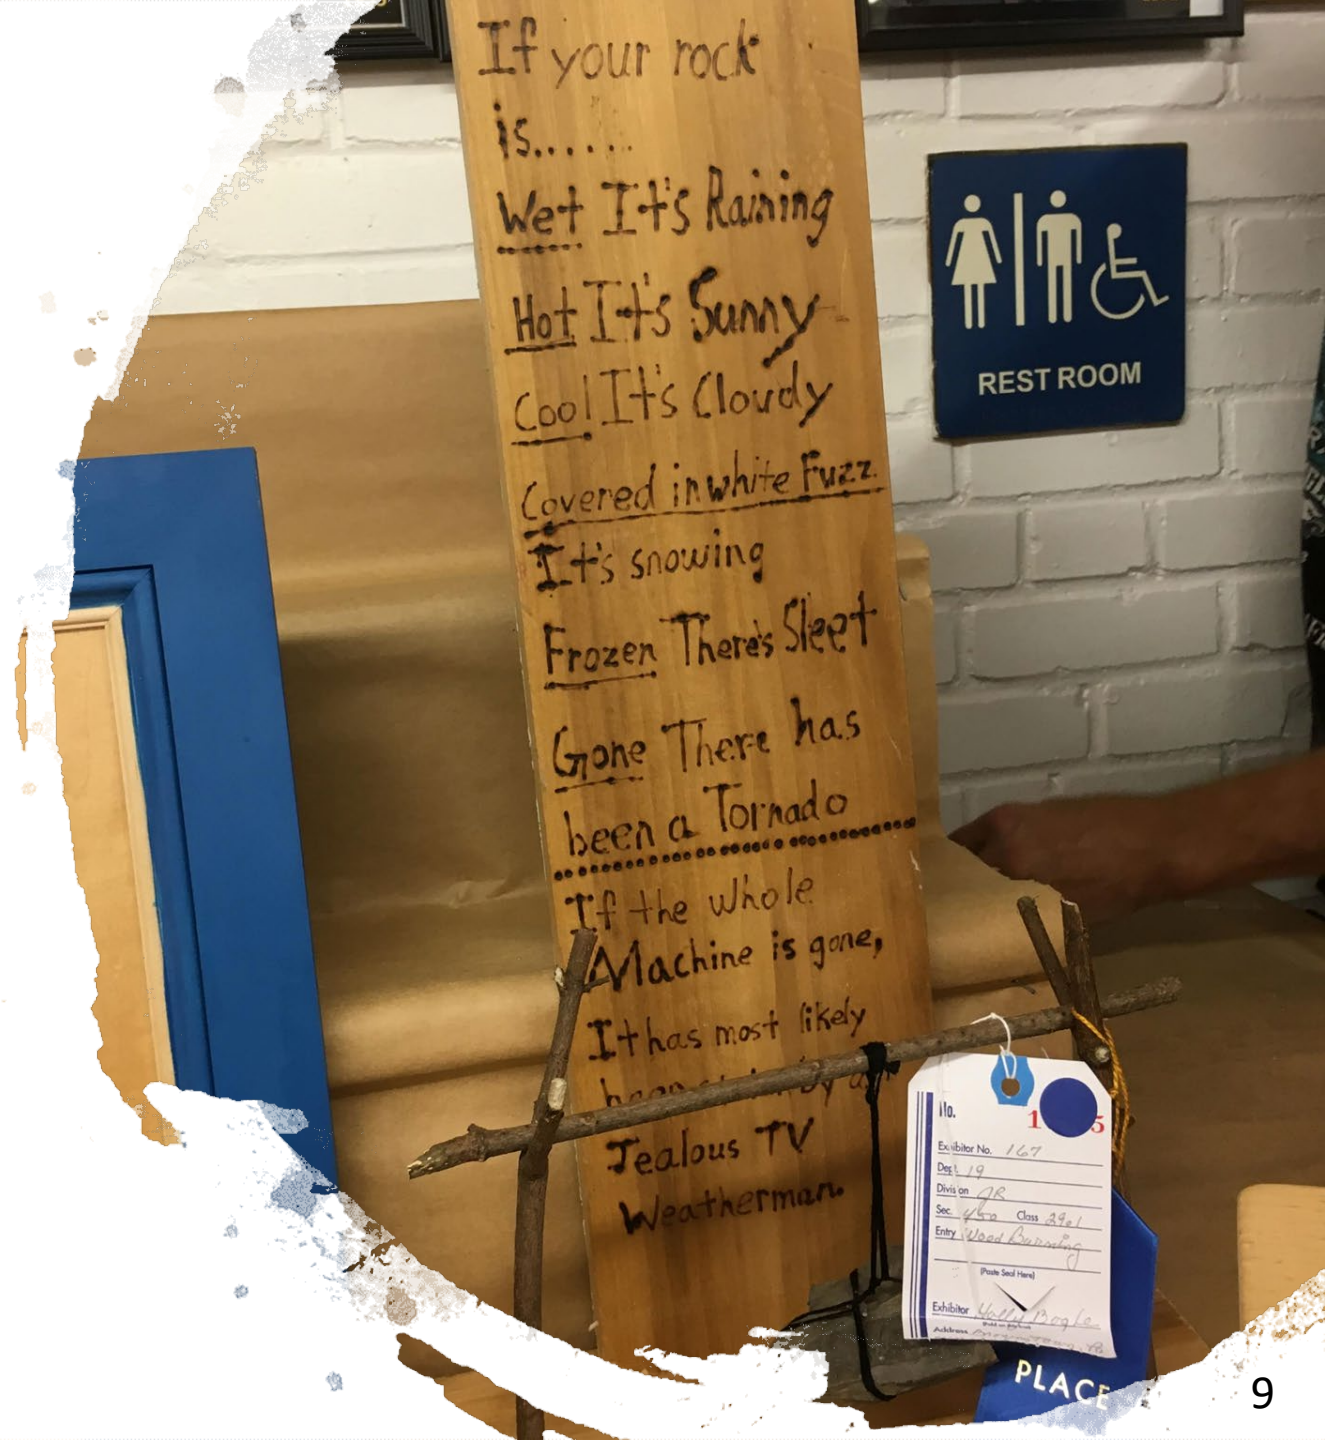 If your rock
is......
Wet It's Raining
Hot It's Sunny
Cool It's Cloudy
Covered in white Fuzz
It's snowing
Frozen There's Sleet
Gone There has
been a Tornado
If the Whole
Machine is gone,
It has most likely
by a
Jealous TV
Weatherman.
REST ROOM
No.
1 5
Exhibitor No. 167
Dept. 19
Division JR
Sec. 450 Class 2961
Entry Wood Burning
(Paste Seal Here)
Exhibitor Bogle
Address
PLACE
9